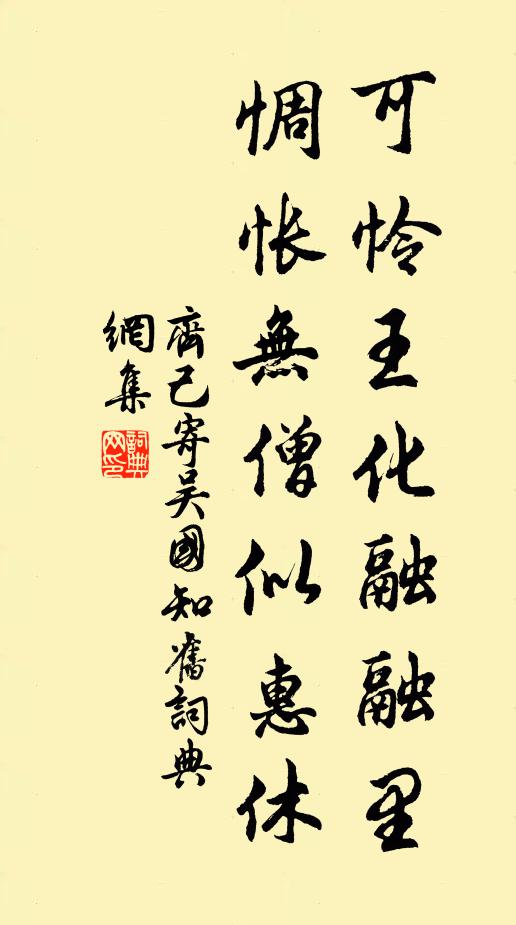 可怜王化融融里
惆怅無僧似惠休
齊己寄吴國知舊詞典
網集
詞典網印